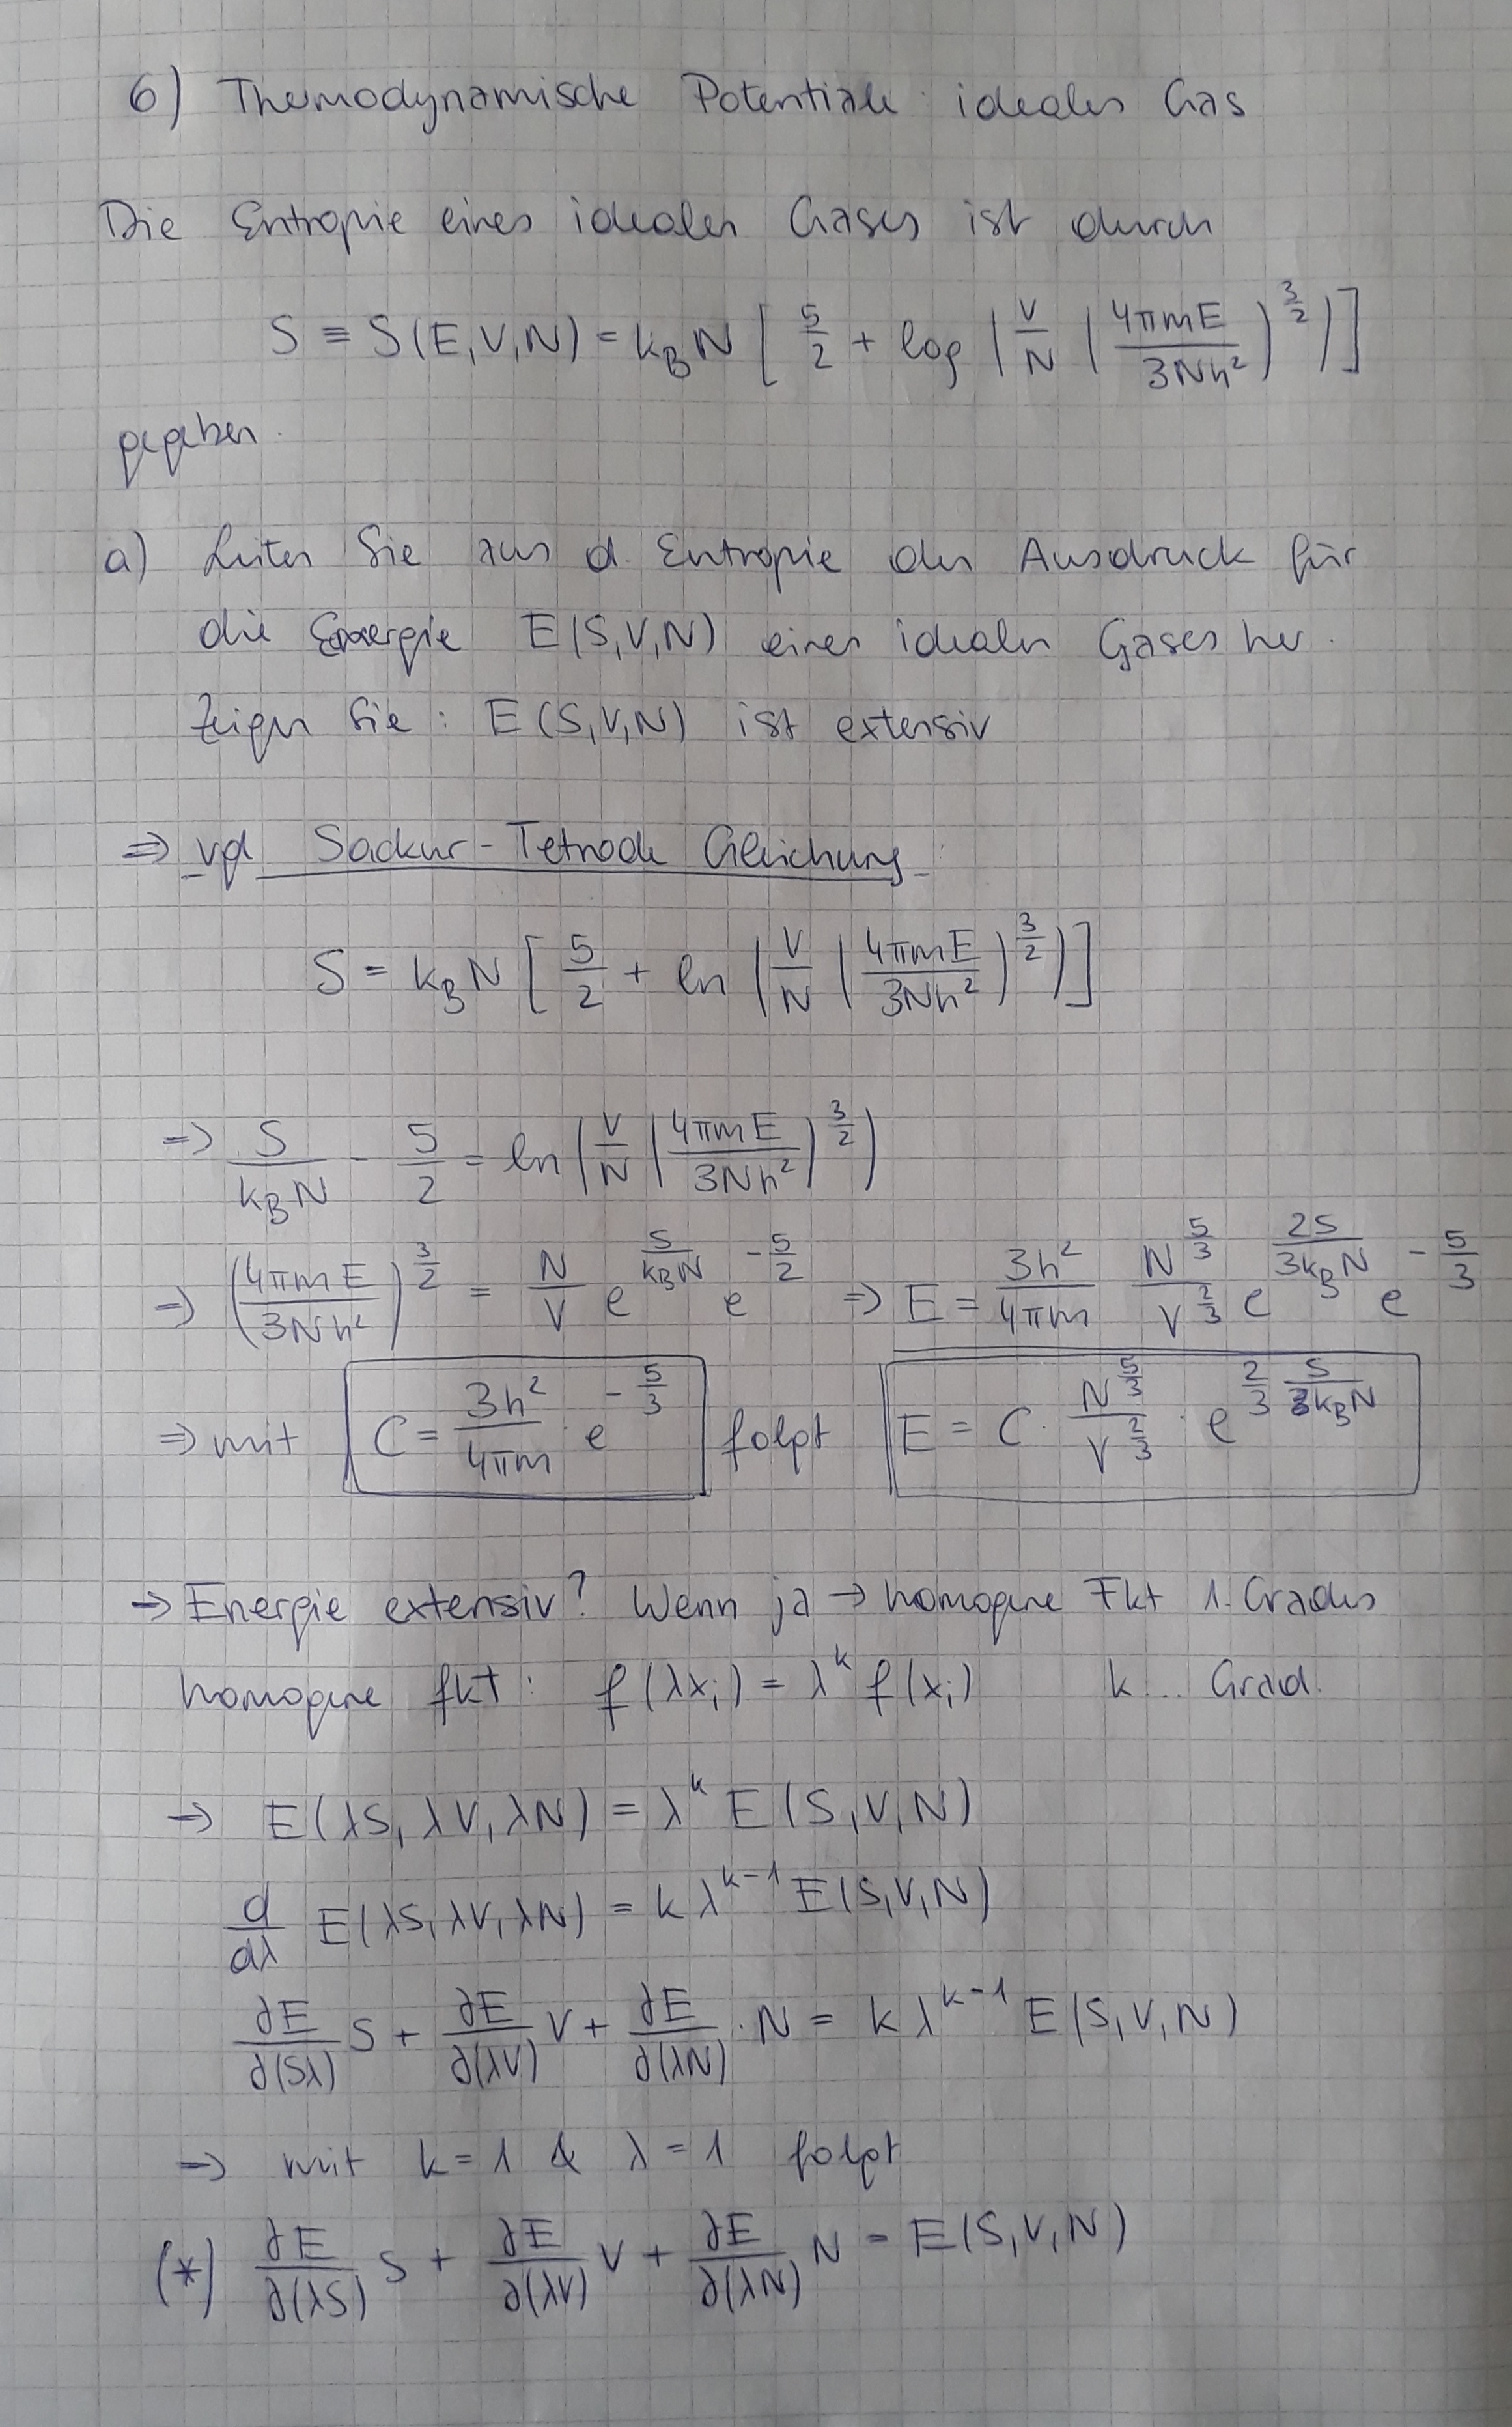 6) Thermodynamische Potentiale ideales Gas
Die Entropie eines idealen Gases ist durch
S ≡ S(E,V,N) = k_B N [ 5/2 + log ( V/N ( 4πmE / 3Nh² )^(3/2) ) ]
gegeben.
a) Leiten Sie aus d. Entropie den Ausdruck für
die Energie E(S,V,N) eines idealen Gases her.
Zeigen Sie: E(S,V,N) ist extensiv
⇒ vgl Sackur-Tetrode Gleichung:
S = k_B N [ 5/2 + ln ( V/N ( 4πmE / 3Nh² )^(3/2) ) ]
⇒ S/(k_B N) - 5/2 = ln ( V/N ( 4πmE / 3Nh² )^(3/2) )
⇒ ( 4πmE / 3Nh² )^(3/2) = N/V e^(S/(k_B N)) e^(-5/2) ⇒ E = 3h²/(4πm) N^(5/3)/V^(2/3) e^(2S/(3k_B N)) e^(-5/3)
⇒ mit C = 3h²/(4πm) · e^(-5/3) folgt E = C · N^(5/3)/V^(2/3) · e^(2/3 S/(k_B N))
→ Energie extensiv? Wenn ja → homogene Fkt 1. Grades
homogene fkt: f(λx_i) = λ^k f(x_i) k ... Grad.
→ E(λS, λV, λN) = λ^k E(S,V,N)
d/dλ E(λS, λV, λN) = k λ^(k-1) E(S,V,N)
∂E/∂(Sλ) S + ∂E/∂(λV) V + ∂E/∂(λN) · N = k λ^(k-1) E(S,V,N)
→ mit k = 1 & λ = 1 folgt
(*) ∂E/∂(λS) S + ∂E/∂(λV) V + ∂E/∂(λN) N = E(S,V,N)